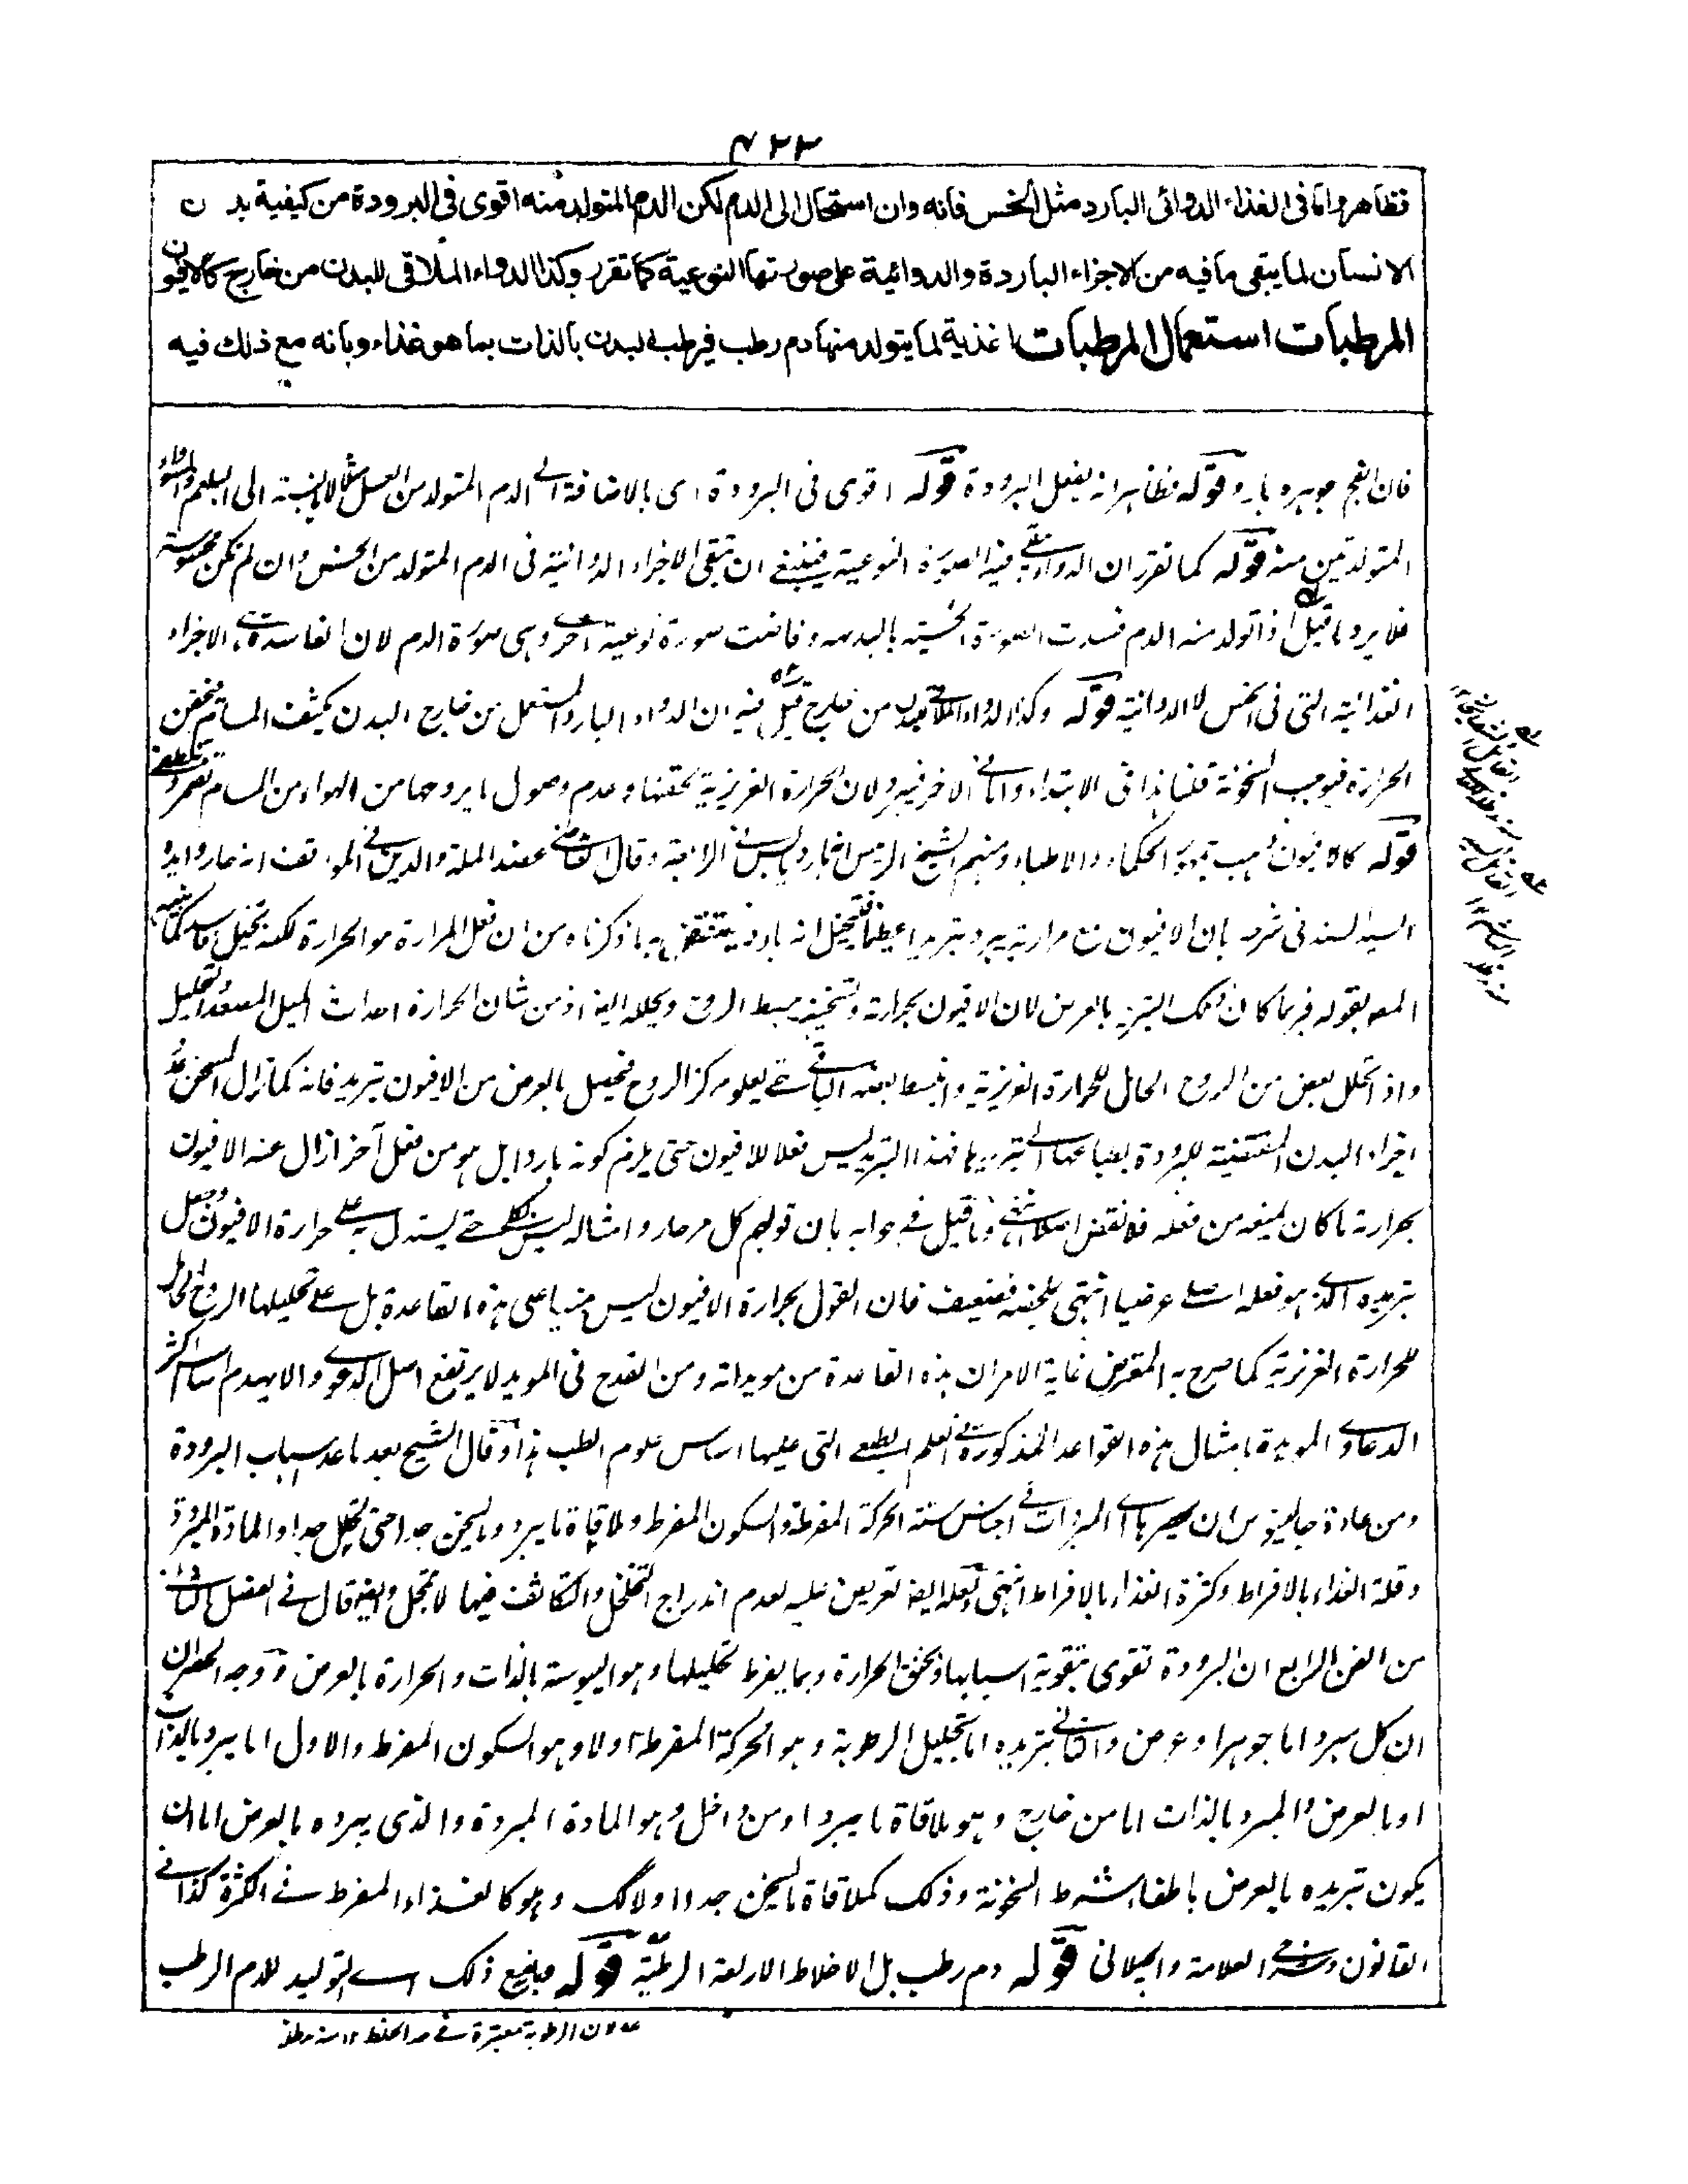 ٤٢٣
فظاهر واما فى الغذاء الدوائى البارد مثل الخس فانه وان استحال الى الدم لكن الدم المتولد منه اقوى فى البرودة من كيفية بدن
الانسان لما يبقى ما فيه من الاجزاء الباردة والدوائية على صورتها النوعية كما تقرر وكذا الدواء الملاقى للبدن من خارج كالافيون
المرطبات استعمال المرطبات اغذية لما يتولد منها دم رطب فيرطب لبدن بالذات بما هو غذاء وبانه مع ذلك فيه
فان الفج جوهره بارد قوله فظاهر انه يفعل البرودة قوله اقوى فى البرودة اى بالاضافة الى الدم المتولد من العسل مثلا لا بالنسبة الى البلغم والسوداء
المتولدتين منه قوله كما تقرر ان الدواء يبقى فيه الصورة النوعية فينبغى ان تبقى الاجزاء الدوائية فى الدم المتولد من الخس وان لم تكن محسوسة
فلا يرد ما قيل اذا تولد منه الدم فسدت الصورة الخسية وفاضت صورة نوعية اخرى وهى صورة الدم لان الفاسدة هى الاجزاء
الغذائية التى فى الخس لا الدوائية قوله وكذا الدواء الملاقى للبدن من خارج قيل فيه ان الدواء البارد المستعمل من خارج البدن يكثف المسام فتحقن
الحرارة فيوجب السخونة قلنا هذا فى الابتداء واما فى الاخر فيبرد لان الحرارة الغريزية بحقنها وعدم وصول ما يروحها من الهواء من المسام
قوله كالافيون ذهب جمهور الحكماء والاطباء ومنهم الشيخ الرئيس انه بارد يابس فى الرابعة وقال القاضى عضد الملة والدين فى المواقف انه حار وايده
السيد السند فى شرحه بان الافيون مع مرارته يبرد تبريدا عظيما فيتخيل انه بارد فينتقض به ما ذكرناه من ان فعل المرارة هو الحرارة لكنه تخيل فاسد كما نبه
المص بقوله فربما كان ذلك التبريد بالعرض لان الافيون بحرارته وتسخينه يبسط الروح ويحلله ايضا اذ من شان الحرارة احداث الميل المصعد والتحليل
واذا تحلل بعض من الروح الحامل للحرارة الغريزية وانبسط بعضه الباقى حتى يعلو مركز الروح فحصل بالعرض من الافيون تبريد فانه كما زال المسخن عن
اجزاء البدن المقتضية للبرودة بطباعها الى تبريدها فهذا التبريد ليس فعلا للافيون حتى يلزم كونه باردا بل هو من فعل آخر ازال عنه الافيون
بحرارته ما كان يمنعه من فعله فلا نقض اصلا انتهى وما قيل فى جوابه بان قولهم كل مر حار وامثاله ليس بكلى حتى يستدل به على حرارة الافيون وجعل
تبريده الذى هو فعله اصلى عرضيا انتهى بلفظه فضعيف فان القول بحرارة الافيون ليس مبنيا على هذه القاعدة بل على تحليلها الروح الحامل
للحرارة الغريزية كما صرح به المعترض غاية الامر ان هذه القاعدة من مويداته ومن القدح فى المويد لا يرتفع اصل الدعوى والا يهدم اساس اكثر
الدعاوى المويدة بامثال هذه القواعد المذكورة فى العلم الطبعى التى عليها اساس علوم الطب هذا وقال الشيخ بعد ما عد اسباب البرودة
ومن عادة جالينوس ان يحصر المبردات فى اجناس ستة الحركة المفرطة والسكون المفرط وملاقاة ما يبرد وما يسخن جدا حتى تحلل جدا والمادة المبردة
وقلة الغذاء بالافراط وكثرة الغذاء بالافراط انتهى ولعله ايضا تعريض عليه لعدم اندراج التخلخل والتكاثف فيها لا تجمل وايضا قال فى الفصل الثانى
من الفن الرابع ان البرودة تقوى بتقوية اسبابها وبخنق الحرارة وبما يفرط تحليلها وهو اليبوسة بالذات والحرارة بالعرض ووجه الحصر ان
ان كل مبرد اما جوهر او عرض والثانى تبريده اما بتحليل الرطوبة وهو الحركة المفرطة او لا وهو السكون المفرط والاول اما يبرد بالذات
او بالعرض والمبرد بالذات اما من خارج وهو ملاقاة ما يبرد او من داخل وهو المادة المبردة والذى يبرده بالعرض اما ان
يكون تبريده بالعرض باطفاء شرط السخونة وذلك كملاقاة ما يسخن جدا او لا كك وهو كالغذاء المفرط فى الكثرة كذا فى
القانون وشرحى العلامة والجيلانى قوله دم رطب بل الاخلاط الاربعة الرطبة قوله مع ذلك اى التوليد للدم الرطب
لان الرطوبة معتبرة فى حد الخلط ١٢ منه مدظله